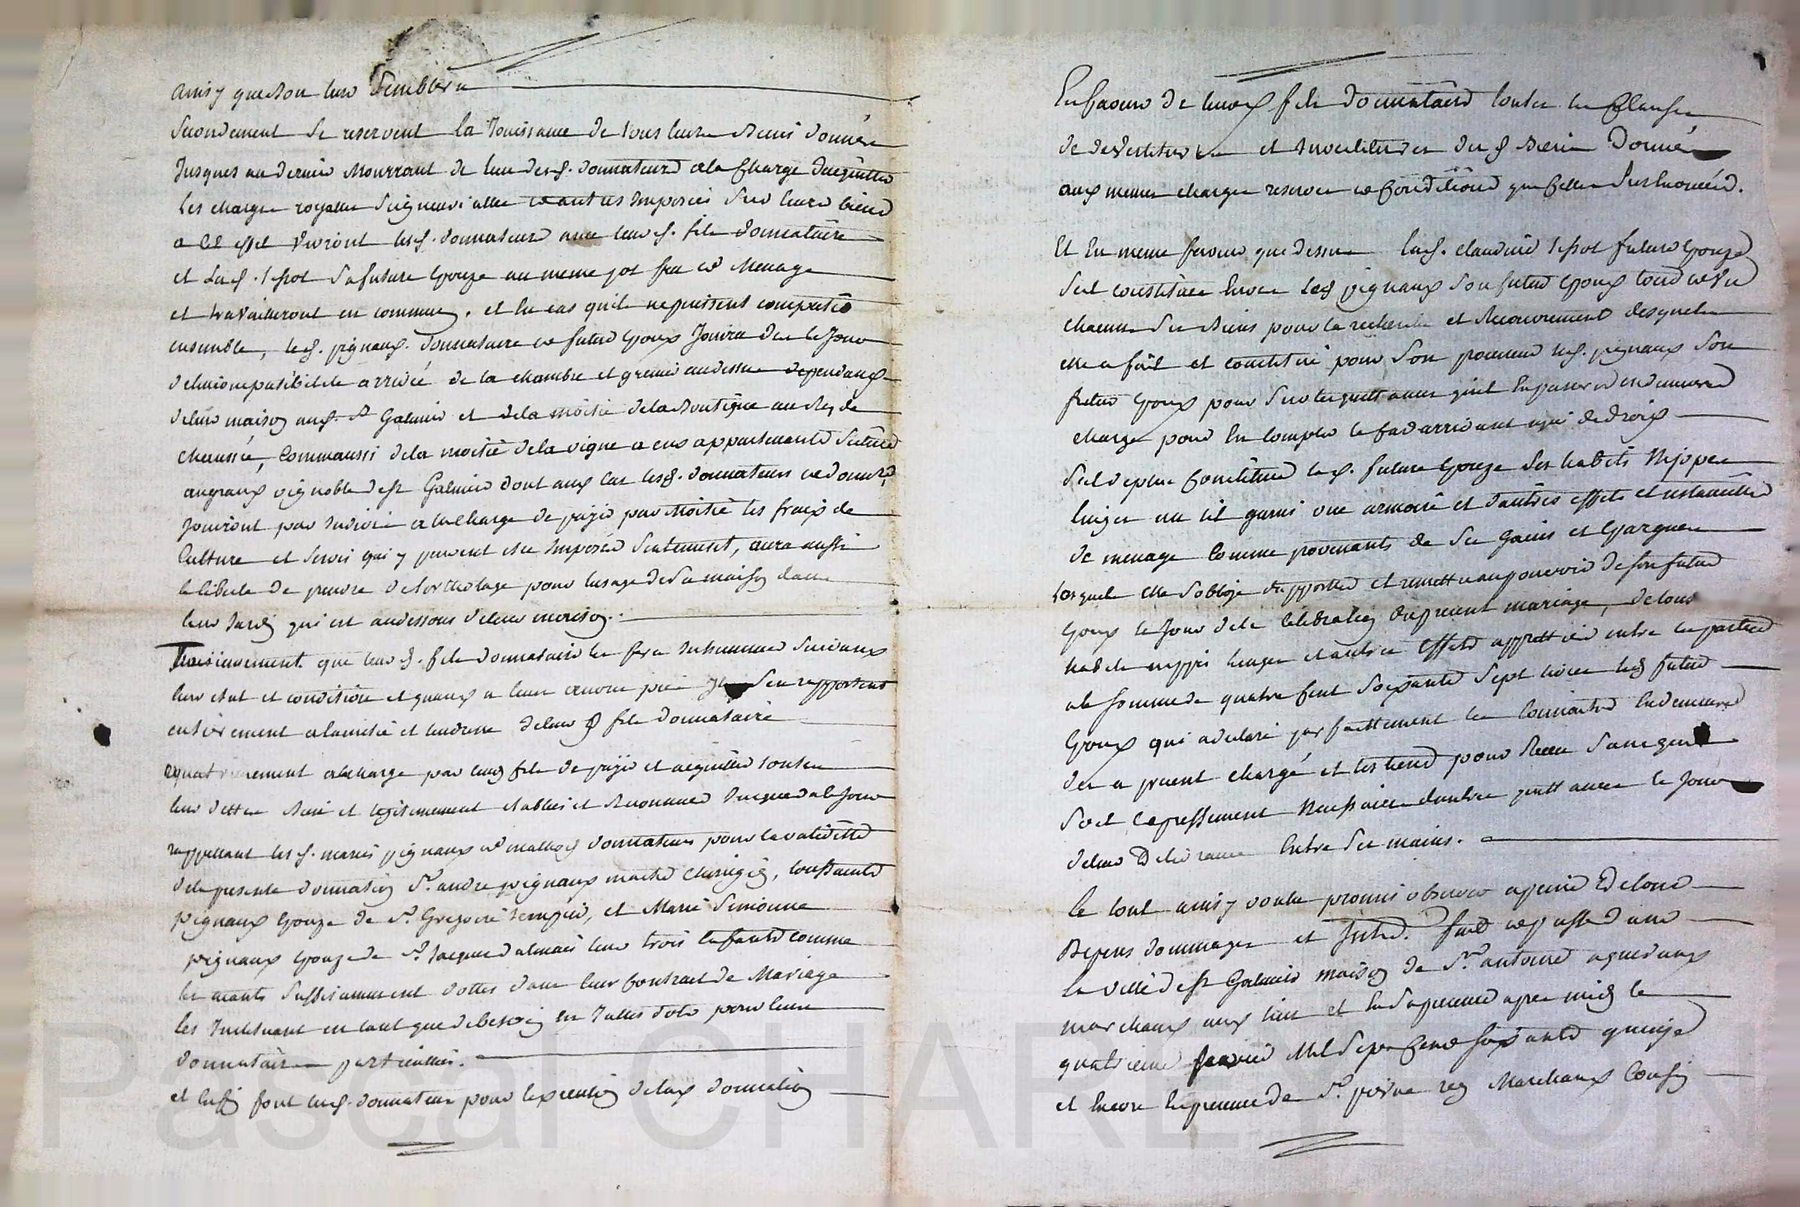 ainsy que bon leur semblera
Secondement se reservent la Jouissance de tous leurs biens donnés
Jusques au dernier mourrant de leur desd. donnateurs a la charge dacquitter
les charges royalles Seigneurialles et autres imposées sur leurs biens
a cet effet vivront lesd. donnateurs avec leurd. fils donnataire
et lad. sa future epouze au meme pot feu et menage
et travailleront en commun. et en cas quil ne puissent compatir
ensemble, led. pignaux donnataire et futur epoux Jouira des le Jour
de lincompatibilité arrivée de la chambre et grenier au dessus dependant
de leur maison aud. St Galmier et de la moitié de la boutique au rez de
chaussée, comm aussi de la moitié de la vigne a eux appartenante située
au vignoble de St Galmier dont aux cas lesd. donnateurs et donnatr.
Jouiront par indivis a la charge de payer par moitié les fraix de
Culture et servis qui y peuvent etre imposés seulement, aura aussi
la liberté de prendre de lorthollage pour lusage de sa maison dans
leur Jardin qui est au dessous de leur maison.
Troisiemement que leurd. fils donnataire les fera inhumer suivant
leur etat et condition et quant a leurs œuvres pies Ils sen rapportent
entierement a lamitié et tendresse de leurd fils donnataire
quatriemement a la charge par leurd fils de payer et acquitter toutes
leurs dettes bien et legitimement etablies et reconnues Jusques a ce Jour
rappellant lesd. mariés pignaux et donnateurs pour la validitté
de la presente donnation Sr. andre pignaux maitre chirurgien,
pignaux epouze de Sr. Gregoire et Marie Simonne
pignaux epouze de Sr. Jacques dalmais leurs trois enfants comme
les ayants suffisamment dottés dans leur Contrats de Mariage
les instituant en tant que de besoin en icelles dots pour leurs
donnataires particuliers.
et enfin font lesd. donnateurs pour lexecution de lad. donnation
En faveur de leurd. fils donnataire toutes les Clauses
de devestiture et investitures desd biens donnés
aux memes charges reserves et Conditions que Celles sus enoncées.
Et en meme faveur que dessus lad. claudine future epouze
Sest constituée envers led pignaux son futur epoux tous et un
chacuns ses biens pour la recherche et recouvrement desquels
elle a fait et constitué pour son procureur led. pignaux son
futur epoux pour sur les quittances quil en passera en demeurer
chargé pour en compter le cas arrivant a qui de droit
Sest de plus constituée lad. future epouze ses habits nippes
linges un lit garni une armoire et dautres effets et ustanciles
de menage comme provenants de ses gains et epargnes
lesquels elle soblige dapporter et remettre au pouvoir de son futur
epoux le Jour de la celebration du present mariage, de tous
habits nippes linges et autres effets appretties entre les parties
a la somme de quatre Cent soixante sept livres led futur
epoux qui a declaré parfaittement les connoitre en demeure
des a present chargé et les tient pour recus sans quil
soit expressement necessaire dautre quittance le Jour
de leur delivrance entre ses mains.
le tout ainsy voulu promis observer a peine de tous
depens dommages et Interets. fait et passé dans
la ville de St Galmier maison de Sr. antoine
marchand aud. lieu et En sa presence apres midy le
quatrieme fevrier Mil Sept Cent soixante quinze
et encore en presence de Sr. rey Marchand Cousin